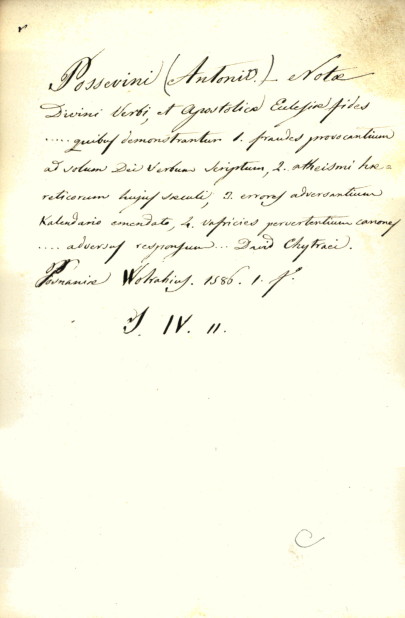 Possevini (Antonii.) Notæ
Divini Verbi, et Apostolicæ Ecclesiæ fides
..... quibus demonstrantur 1. fraudes provocantium
ad solum Dei Verbum scriptum, 2. atheismi hæ=
reticorum hujus sæculi, 3. errores adversantium
Kalendario emendato, 4. vafricies pervertentium canones
.... adversus responsum ... David Chytraei.
Posnaniæ Wolrabius. 1586. 1. f°.
J. IV. 11.
C